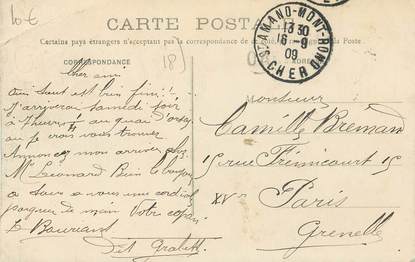 10 €
CARTE POSTALE
Certains pays étrangers n'acceptent pas la correspondance de ce côté, se renseigner à la Poste
CORRESPONDANCE
ADRESSE
18
St AMAND-MONT-ROND
13 30
16-9
09
CHER
Cher ami
tout est bien fini!
J'arriverai Samedi soir
à 7 heures au quai d'orsay
ou je crois vous trouver
Annoncez mon arrivée chez
Mr Leonard Bien le bonjour
a tous a vous une cordial
poignee de main Votre copain
Dit
Monsieur
Camille Bremard
15 rue Frémicourt 15
XVe Paris
Grenelle